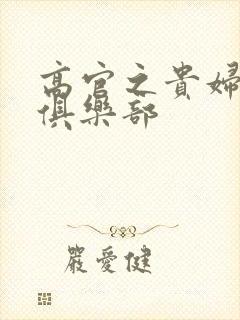 高官之貴婦
俱樂部
嚴愛健